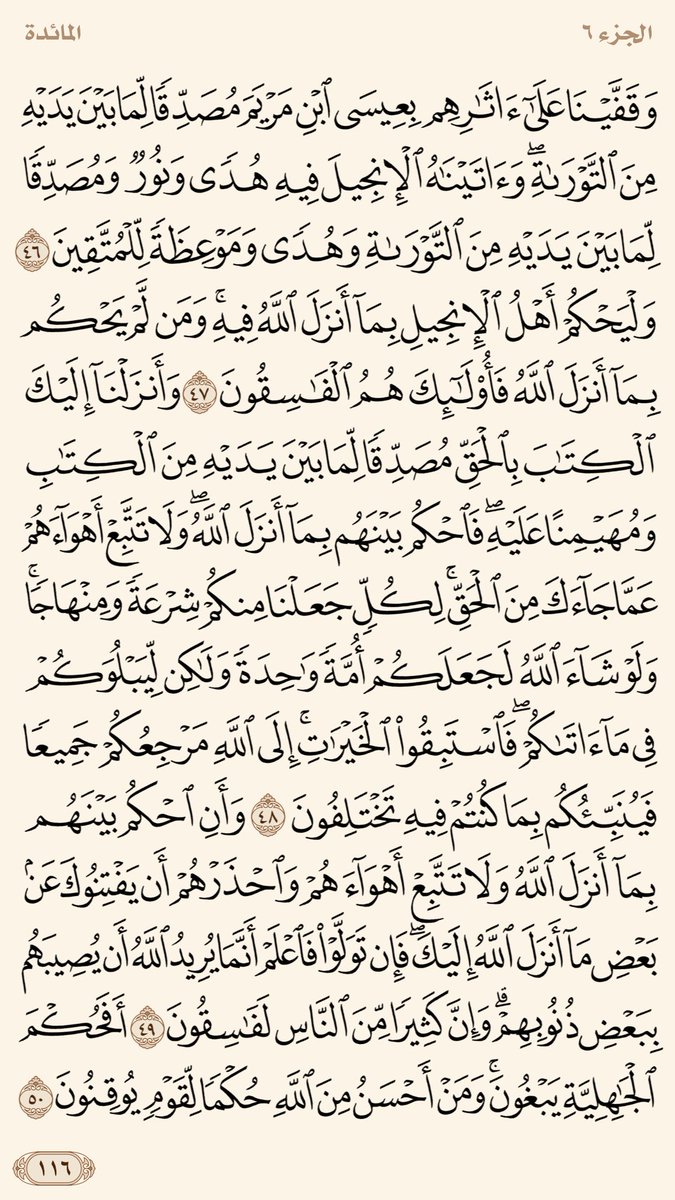 الجزء ٦
المائدة
وَقَفَّيْنَا عَلَىٰٓ ءَاثَٰرِهِم بِعِيسَى ٱبْنِ مَرْيَمَ مُصَدِّقًا لِّمَا بَيْنَ يَدَيْهِ
مِنَ ٱلتَّوْرَىٰةِۖ وَءَاتَيْنَٰهُ ٱلْإِنجِيلَ فِيهِ هُدًى وَنُورٌ وَمُصَدِّقًا
لِّمَا بَيْنَ يَدَيْهِ مِنَ ٱلتَّوْرَىٰةِ وَهُدًى وَمَوْعِظَةً لِّلْمُتَّقِينَ ٤٦
وَلْيَحْكُمْ أَهْلُ ٱلْإِنجِيلِ بِمَآ أَنزَلَ ٱللَّهُ فِيهِۚ وَمَن لَّمْ يَحْكُم
بِمَآ أَنزَلَ ٱللَّهُ فَأُو۟لَٰٓئِكَ هُمُ ٱلْفَٰسِقُونَ ٤٧ وَأَنزَلْنَآ إِلَيْكَ
ٱلْكِتَٰبَ بِٱلْحَقِّ مُصَدِّقًا لِّمَا بَيْنَ يَدَيْهِ مِنَ ٱلْكِتَٰبِ
وَمُهَيْمِنًا عَلَيْهِۖ فَٱحْكُم بَيْنَهُم بِمَآ أَنزَلَ ٱللَّهُۖ وَلَا تَتَّبِعْ أَهْوَآءَهُمْ
عَمَّا جَآءَكَ مِنَ ٱلْحَقِّۚ لِكُلٍّ جَعَلْنَا مِنكُمْ شِرْعَةً وَمِنْهَاجًاۚ
وَلَوْ شَآءَ ٱللَّهُ لَجَعَلَكُمْ أُمَّةً وَٰحِدَةً وَلَٰكِن لِّيَبْلُوَكُمْ
فِى مَآ ءَاتَىٰكُمْۖ فَٱسْتَبِقُوا۟ ٱلْخَيْرَٰتِۚ إِلَى ٱللَّهِ مَرْجِعُكُمْ جَمِيعًا
فَيُنَبِّئُكُم بِمَا كُنتُمْ فِيهِ تَخْتَلِفُونَ ٤٨ وَأَنِ ٱحْكُم بَيْنَهُم
بِمَآ أَنزَلَ ٱللَّهُ وَلَا تَتَّبِعْ أَهْوَآءَهُمْ وَٱحْذَرْهُمْ أَن يَفْتِنُوكَ عَنۢ
بَعْضِ مَآ أَنزَلَ ٱللَّهُ إِلَيْكَۖ فَإِن تَوَلَّوْا۟ فَٱعْلَمْ أَنَّمَا يُرِيدُ ٱللَّهُ أَن يُصِيبَهُم
بِبَعْضِ ذُنُوبِهِمْۗ وَإِنَّ كَثِيرًا مِّنَ ٱلنَّاسِ لَفَٰسِقُونَ ٤٩ أَفَحُكْمَ
ٱلْجَٰهِلِيَّةِ يَبْغُونَۚ وَمَنْ أَحْسَنُ مِنَ ٱللَّهِ حُكْمًا لِّقَوْمٍ يُوقِنُونَ ٥٠
١١٦